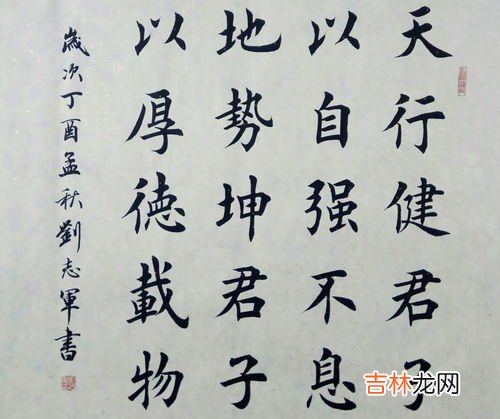 天行健君子
以自强不息
地勢坤君子
以厚德載物
歲次丁酉孟秋劉志軍書
吉林龙网